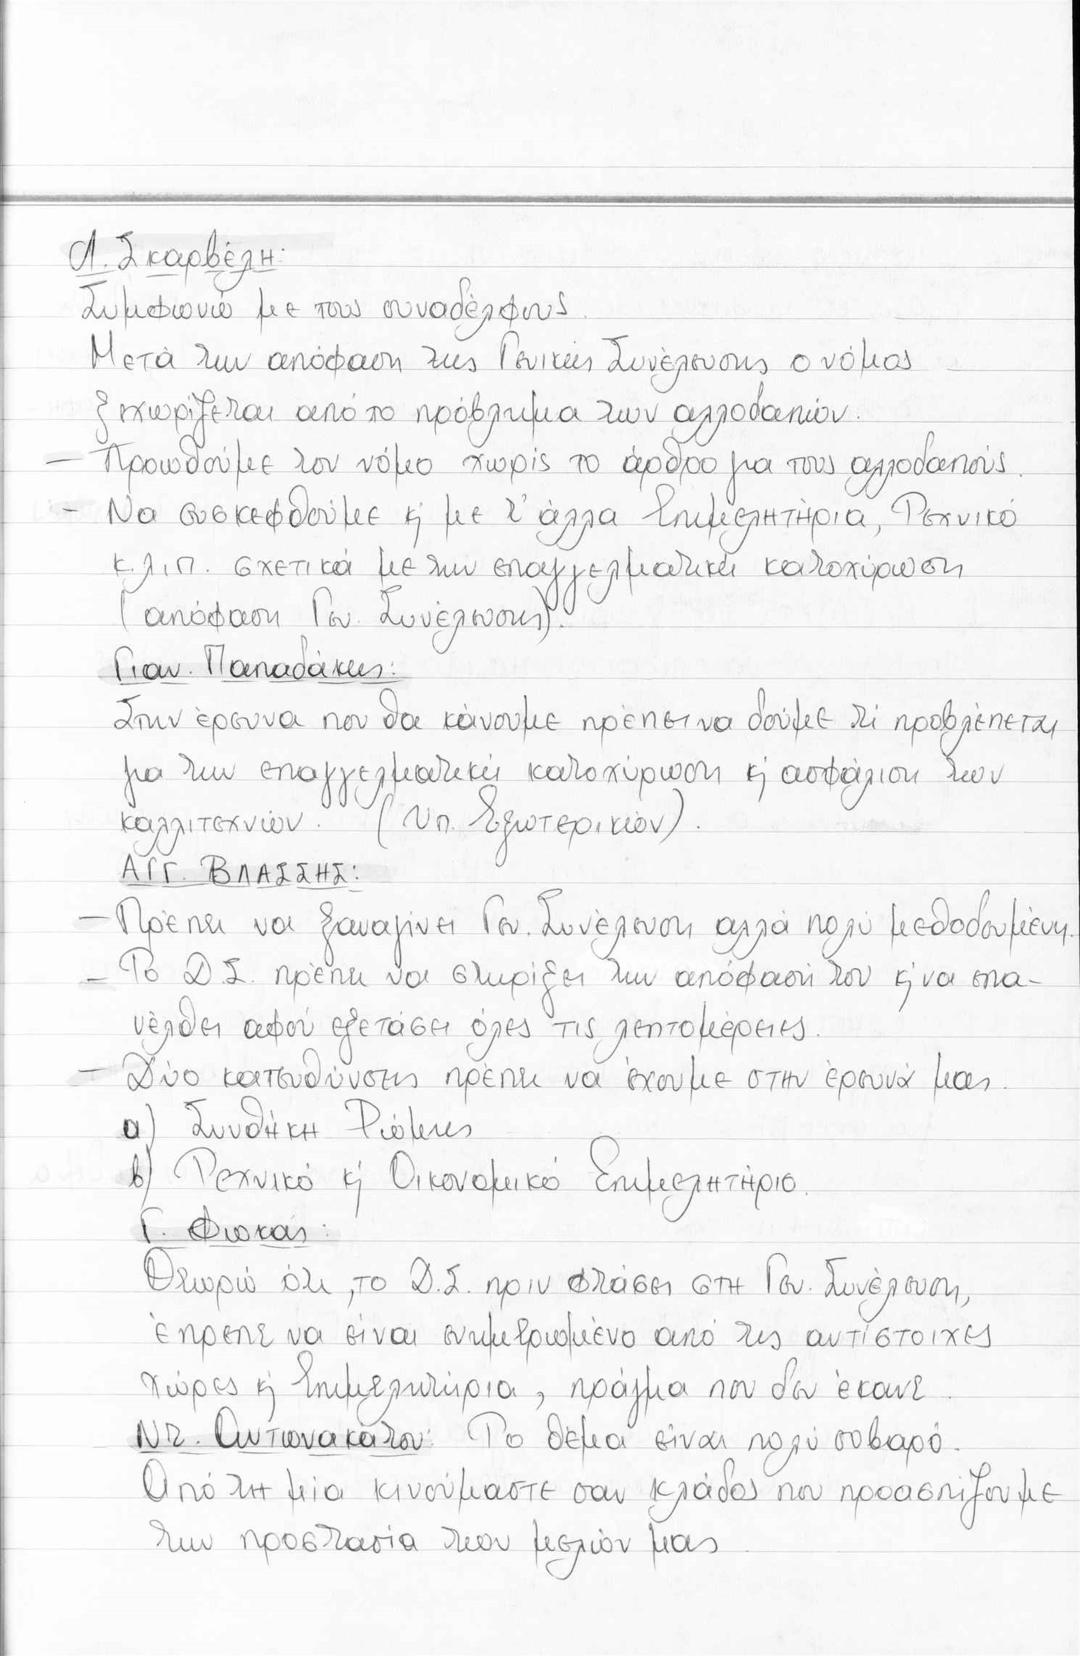 Λ. Σκαρβέλη:
Συμφωνώ με τους συναδέλφους.
Μετά την απόφαση της Γενικής Συνέλευσης ο νόμος
ξεχωρίζεται από το πρόβλημα των αλλοδαπών.
— Προωθούμε τον νόμο χωρίς το άρθρο για τους αλλοδαπούς.
- Να συσκεφθούμε κ με τ' άλλα Επιμελητήρια, Τεχνικό
κ.λ.π. σχετικά με την επαγγελματική κατοχύρωση
(απόφαση Γεν. Συνέλευσης).
Γιαν. Παπαδάκης:
Στην έρευνα που θα κάνουμε πρέπει να δούμε τί προβλέπεται
για την επαγγελματική κατοχύρωση κ ασφάλιση των
καλλιτεχνών. (Υπ. Εξωτερικών).
ΑΓΓ. ΒΛΑΣΣΗΣ:
— Πρέπει να ξαναγίνει Γεν. Συνέλευση αλλά πολύ μεθοδευμένη.
— Το Δ.Σ. πρέπει να στηρίξει την απόφασή του κ να επα-
νέλθει αφού εξετάσει όλες τις λεπτομέρειες.
— Δύο κατευθύνσεις πρέπει να έχουμε στην έρευνά μας.
α) Συνθήκη Ρώμης
β) Τεχνικό κ Οικονομικό Επιμελητήριο.
Γ. Φωκάς:
Θεωρώ ότι, το Δ.Σ. πριν φτάσει στη Γεν. Συνέλευση,
έπρεπε να είναι ενημερωμένο από τις αντίστοιχες
χώρες κ Επιμελητήρια, πράγμα που δεν έκανε.
Ντ. Αντωνακάτου: Το θέμα είναι πολύ σοβαρό.
Από τη μία κινούμαστε σαν κλάδος που προασπίζουμε
την προστασία των μελών μας